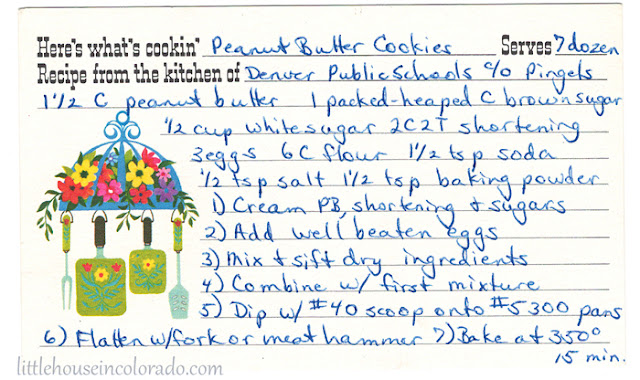 Here's what's cookin' Peanut Butter Cookies Serves 7 dozen
Recipe from the kitchen of Denver Public Schools c/o Pingels
1 1/2 C peanut butter 1 packed-heaped C brown sugar
1/2 cup white sugar 2C2T shortening
3 eggs 6 C flour 1 1/2 tsp soda
1/2 tsp salt 1 1/2 tsp baking powder
1) Cream PB, shortening + sugars
2) Add well beaten eggs
3) Mix + sift dry ingredients
4) Combine w/ first mixture
5) Dip w/ #40 scoop onto #5300 pans
6) Flatten w/fork or meat hammer 7) Bake at 350°
15 min.
littlehouseincolorado.com